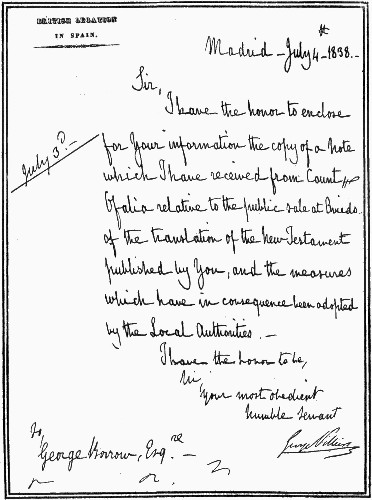 BRITISH LEGATION
IN SPAIN.
Madrid - July 4th - 1838. -
Sir,
I have the honor to enclose
for Your information the copy of a Note
July 3d. -
which I have received from Count
Ofalia relative to the public sale at
of the translation of the New Testament
published by You, and the measures
which have in consequence been adopted
by the Local Authorities. -
I have the honor to be,
Sir,
Your most obedient
humble servant
George Villiers
To,
George Borrow, Esqre. -